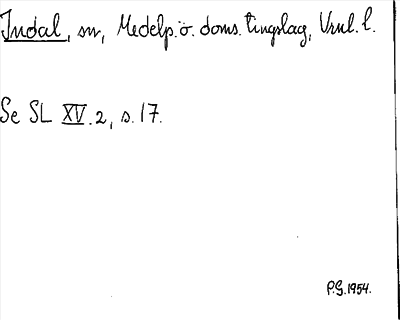 Indal, sn, Medelp. ö. doms. tingslag, Vrnl. l.
Se SL XV. 2, s. 17.
P.G. 1954.